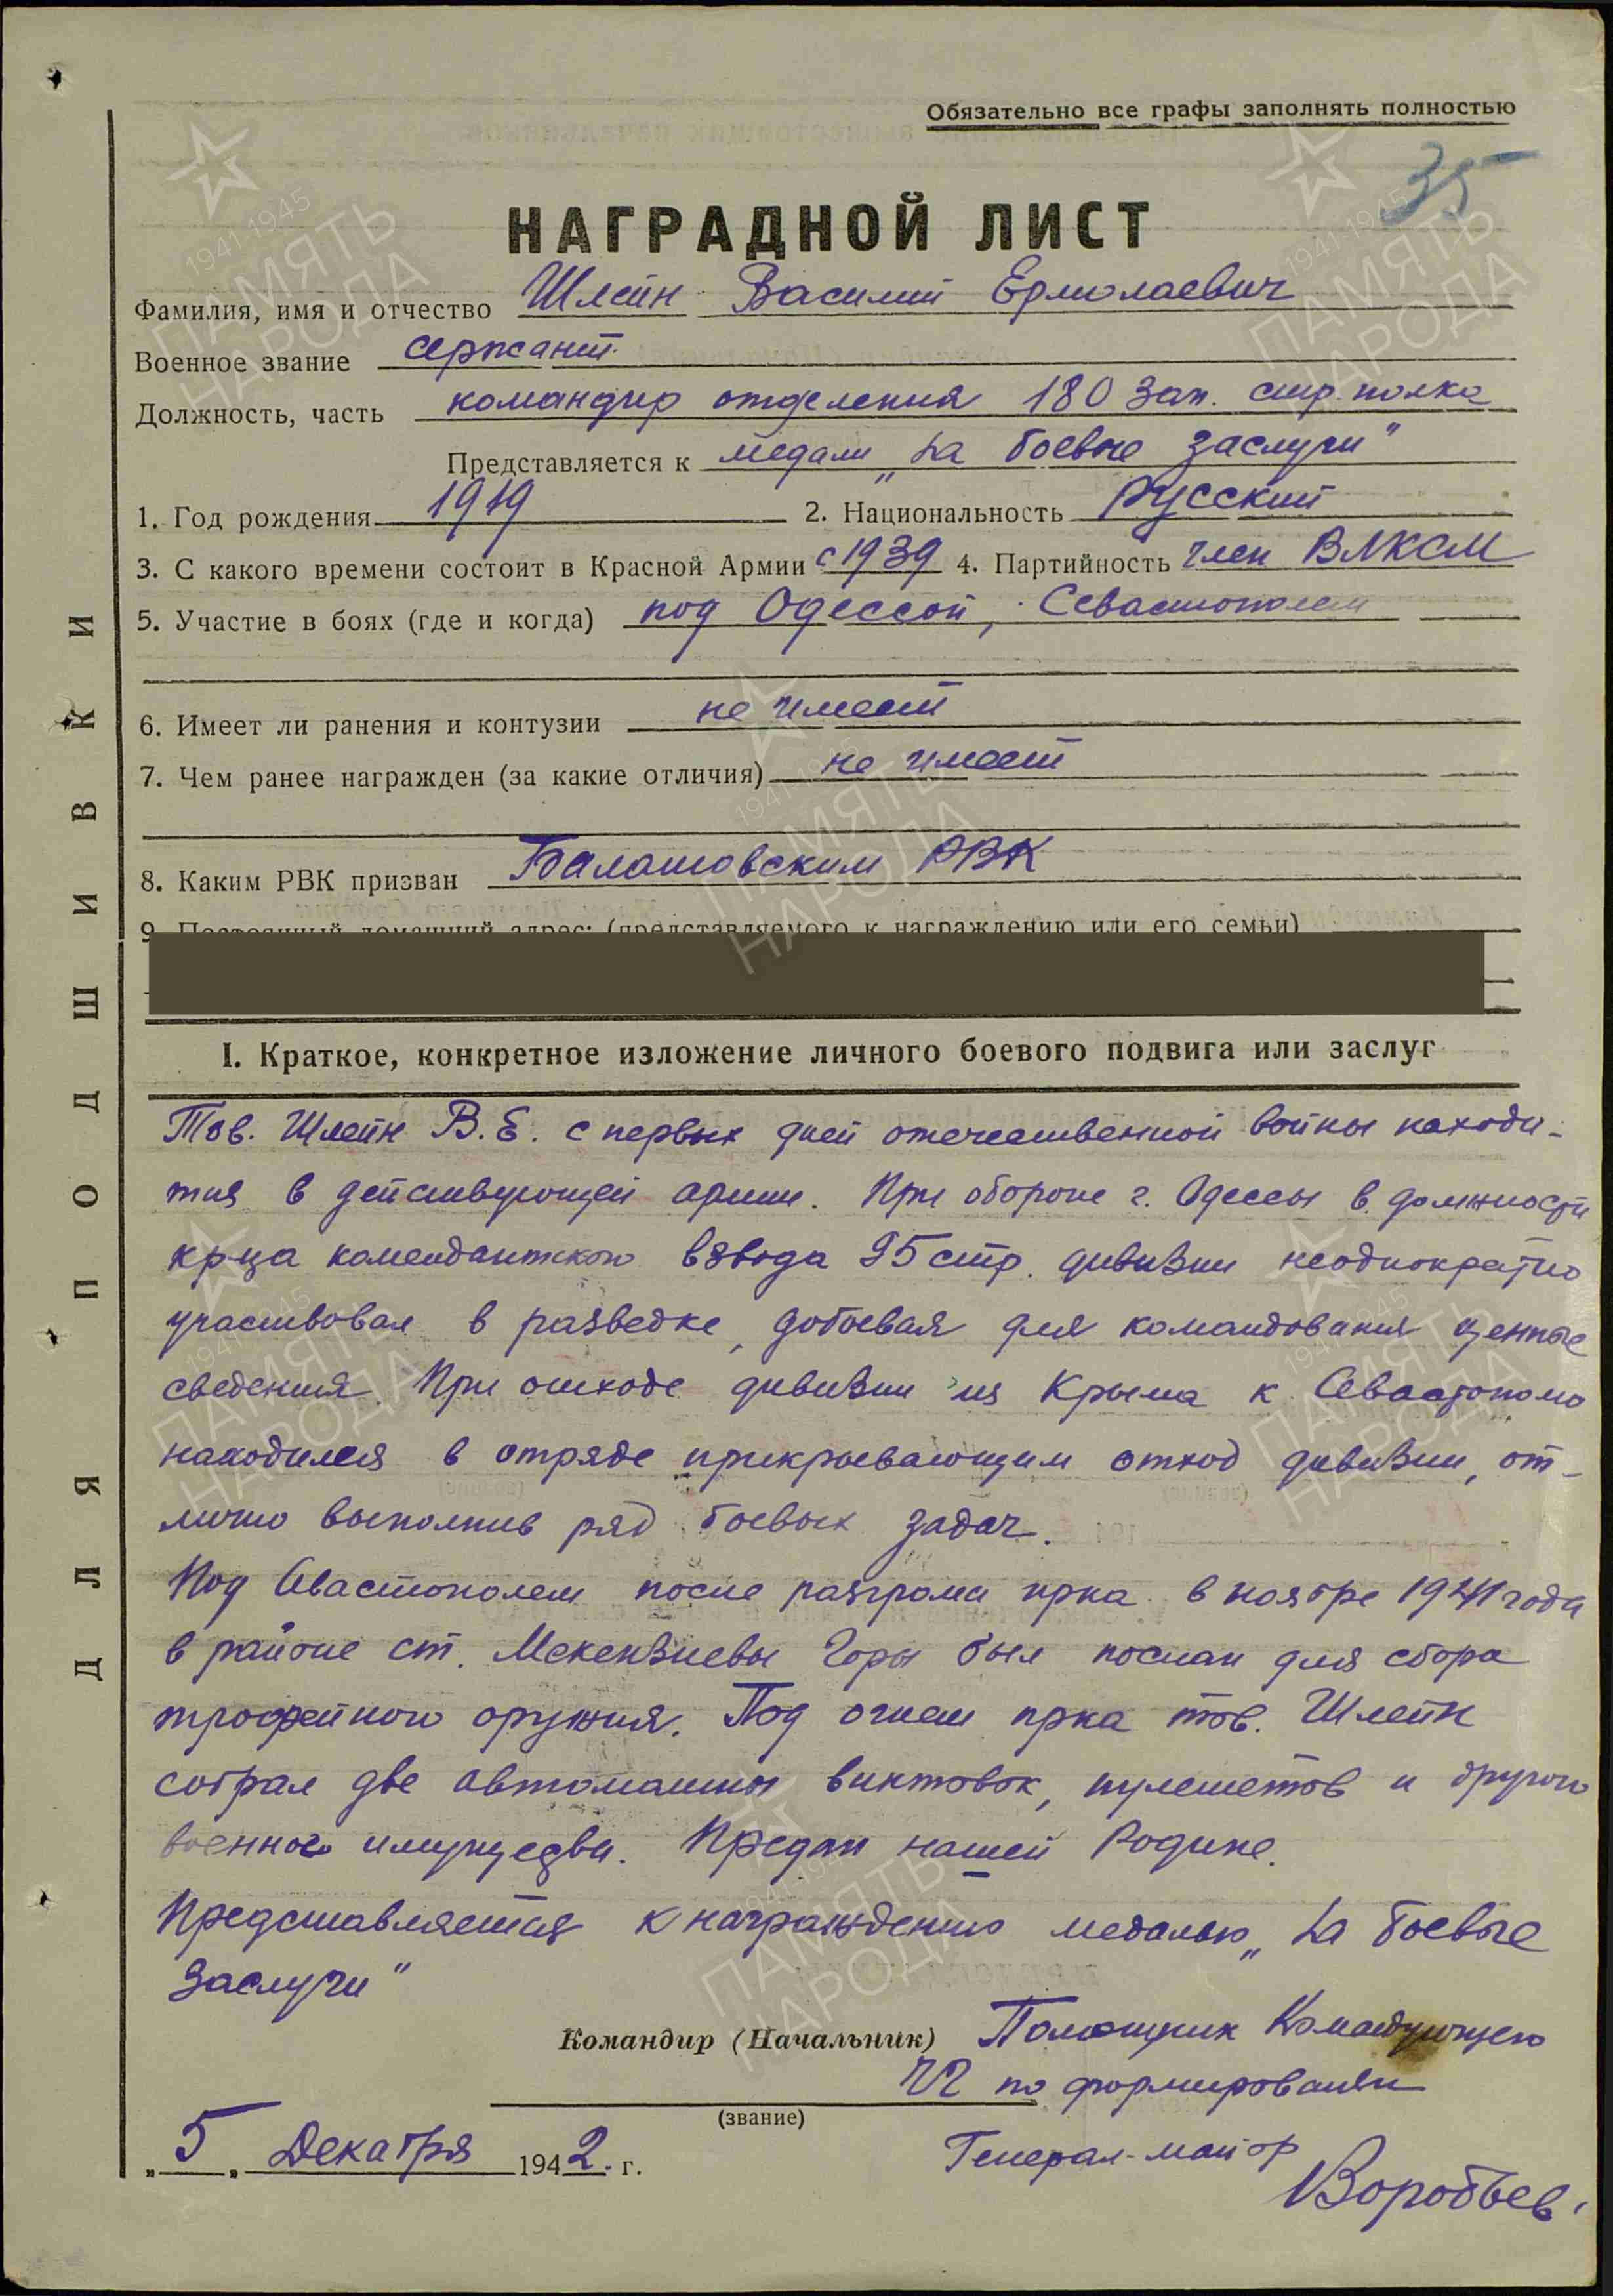 Обязательно все графы заполнять полностью
35
НАГРАДНОЙ ЛИСТ
Фамилия, имя и отчество Шлейн Василий Ермолаевич
Военное звание сержант.
Должность, часть командир отделения 180 зап. стр. полка
Представляется к медали „За боевые заслуги"
1. Год рождения 1919 2. Национальность русский
3. С какого времени состоит в Красной Армии с 1939 4. Партийность член ВЛКСМ
5. Участие в боях (где и когда) под Одессой, Севастополем
6. Имеет ли ранения и контузии не имеет
7. Чем ранее награжден (за какие отличия) не имеет
8. Каким РВК призван Балашовским РВК
9. Постоянный домашний адрес: (представляемого к награждению или его семьи)
I. Краткое, конкретное изложение личного боевого подвига или заслуг
Тов. Шлейн В.Е. с первых дней отечественной войны находи-
тся в действующей армии. При обороне г. Одессы в должности
кр-ца комендантского взвода 95 стр. дивизии неоднократно
участвовал в разведке, добывая для командования ценные
сведения. При отходе дивизии из Крыма к Севастополю
находился в отряде прикрывающим отход дивизии, от-
лично выполнив ряд боевых задач.
Под Севастополем после разгрома прка в ноябре 1941 года
в районе ст. Мекензиевы Горы был послан для сбора
трофейного оружия. Под огнем прка тов. Шлейн
собрал две автомашины винтовок, пулеметов и другого
военного имущества. Предан нашей Родине.
Представляется к награждению медалью „За боевые
заслуги"
Командир (Начальник) Помощник Командующего
ЧГ по формированию
(звание)
Генерал-майор
Воробьев.
„5" Декабря 1942. г.
ДЛЯ ПОДШИВКИ
1941-1945
ПАМЯТЬ
НАРОДА